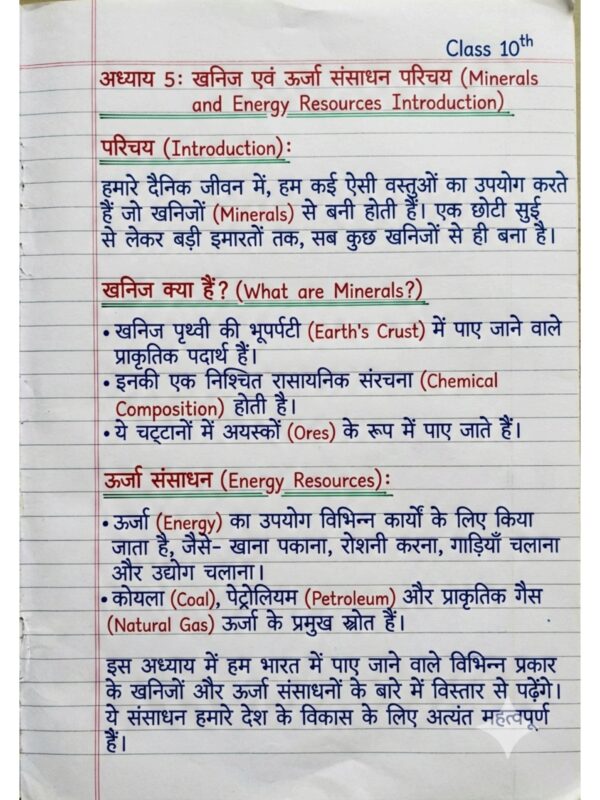 Class 10th
अध्याय 5: खनिज एवं ऊर्जा संसाधन परिचय (Minerals
and Energy Resources Introduction)
परिचय (Introduction):
हमारे दैनिक जीवन में, हम कई ऐसी वस्तुओं का उपयोग करते
हैं जो खनिजों (Minerals) से बनी होती हैं। एक छोटी सुई
से लेकर बड़ी इमारतों तक, सब कुछ खनिजों से ही बना है।
खनिज क्या हैं? (What are Minerals?)
• खनिज पृथ्वी की भूपर्पटी (Earth's Crust) में पाए जाने वाले
प्राकृतिक पदार्थ हैं।
• इनकी एक निश्चित रासायनिक संरचना (Chemical
Composition) होती है।
• ये चट्टानों में अयस्कों (Ores) के रूप में पाए जाते हैं।
ऊर्जा संसाधन (Energy Resources):
• ऊर्जा (Energy) का उपयोग विभिन्न कार्यों के लिए किया
जाता है, जैसे- खाना पकाना, रोशनी करना, गाड़ियाँ चलाना
और उद्योग चलाना।
• कोयला (Coal), पेट्रोलियम (Petroleum) और प्राकृतिक गैस
(Natural Gas) ऊर्जा के प्रमुख स्रोत हैं।
इस अध्याय में हम भारत में पाए जाने वाले विभिन्न प्रकार
के खनिजों और ऊर्जा संसाधनों के बारे में विस्तार से पढ़ेंगे।
ये संसाधन हमारे देश के विकास के लिए अत्यंत महत्वपूर्ण
हैं।